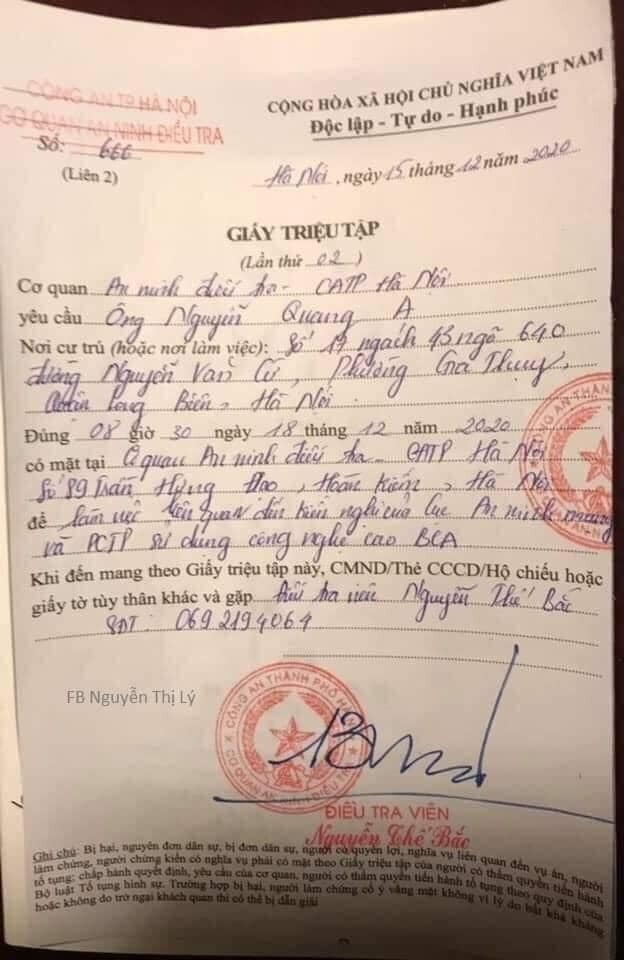 CÔNG AN TP HÀ NỘI
CƠ QUAN AN NINH ĐIỀU TRA
Số: 666
(Liên 2)
CỘNG HÒA XÃ HỘI CHỦ NGHĨA VIỆT NAM
Độc lập - Tự do - Hạnh phúc
Hà Nội, ngày 15 tháng 12 năm 2020
GIẤY TRIỆU TẬP
(Lần thứ 02)
Cơ quan An ninh điều tra - CATP Hà Nội
yêu cầu Ông Nguyễn Quang A
Nơi cư trú (hoặc nơi làm việc): Số 17 ngách 43 ngõ 640
đường Nguyễn Văn Cừ, Phường Gia Thụy,
Quận Long Biên, Hà Nội.
Đúng 08 giờ 30 ngày 18 tháng 12 năm 2020
có mặt tại Cơ quan An ninh điều tra - CATP Hà Nội
số 89 Trần Hưng Đạo, Hoàn Kiếm, Hà Nội
để làm việc liên quan đến kiến nghị của Cục An ninh mạng
và PCTP sử dụng công nghệ cao BCA
Khi đến mang theo Giấy triệu tập này, CMND/Thẻ CCCD/Hộ chiếu hoặc
giấy tờ tùy thân khác và gặp Điều tra viên Nguyễn Thế Bắc
SĐT: 0692194064
FB Nguyễn Thị Lý
CÔNG AN THÀNH PHỐ
CƠ QUAN AN NINH ĐIỀU TRA
ĐIỀU TRA VIÊN
Nguyễn Thế Bắc
Ghi chú: Bị hại, nguyên đơn dân sự, bị đơn dân sự, người có quyền lợi, nghĩa vụ liên quan đến vụ án, người
làm chứng, người chứng kiến có nghĩa vụ phải có mặt theo Giấy triệu tập của người có thẩm quyền tiến hành
tố tụng; chấp hành quyết định, yêu cầu của cơ quan, người có thẩm quyền tiến hành tố tụng theo quy định của
Bộ luật Tố tụng hình sự. Trường hợp bị hại, người làm chứng cố ý vắng mặt không vì lý do bất khả kháng
hoặc không do trở ngại khách quan thì có thể bị dẫn giải